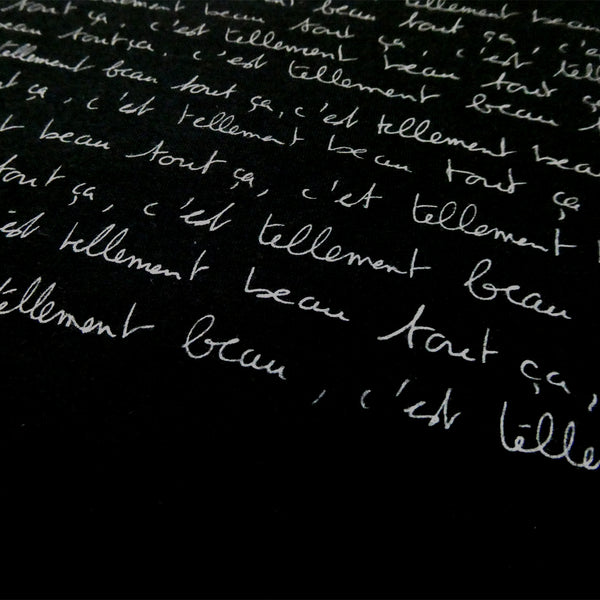 tellement beau
beau tout ça, c'e
tellement beau tout ça, c'est tell
tout ça, c'est tellement beau tout ça
beau tout ça, c'est tellement beau t
tellement beau tout ça, c'est tellement beau
ça, c'est tellement beau tout ça
t beau tout ça, c'est tellement
tout ça, c'est tellement beau
est tellement beau tout ça,
tellement beau, c'est telle